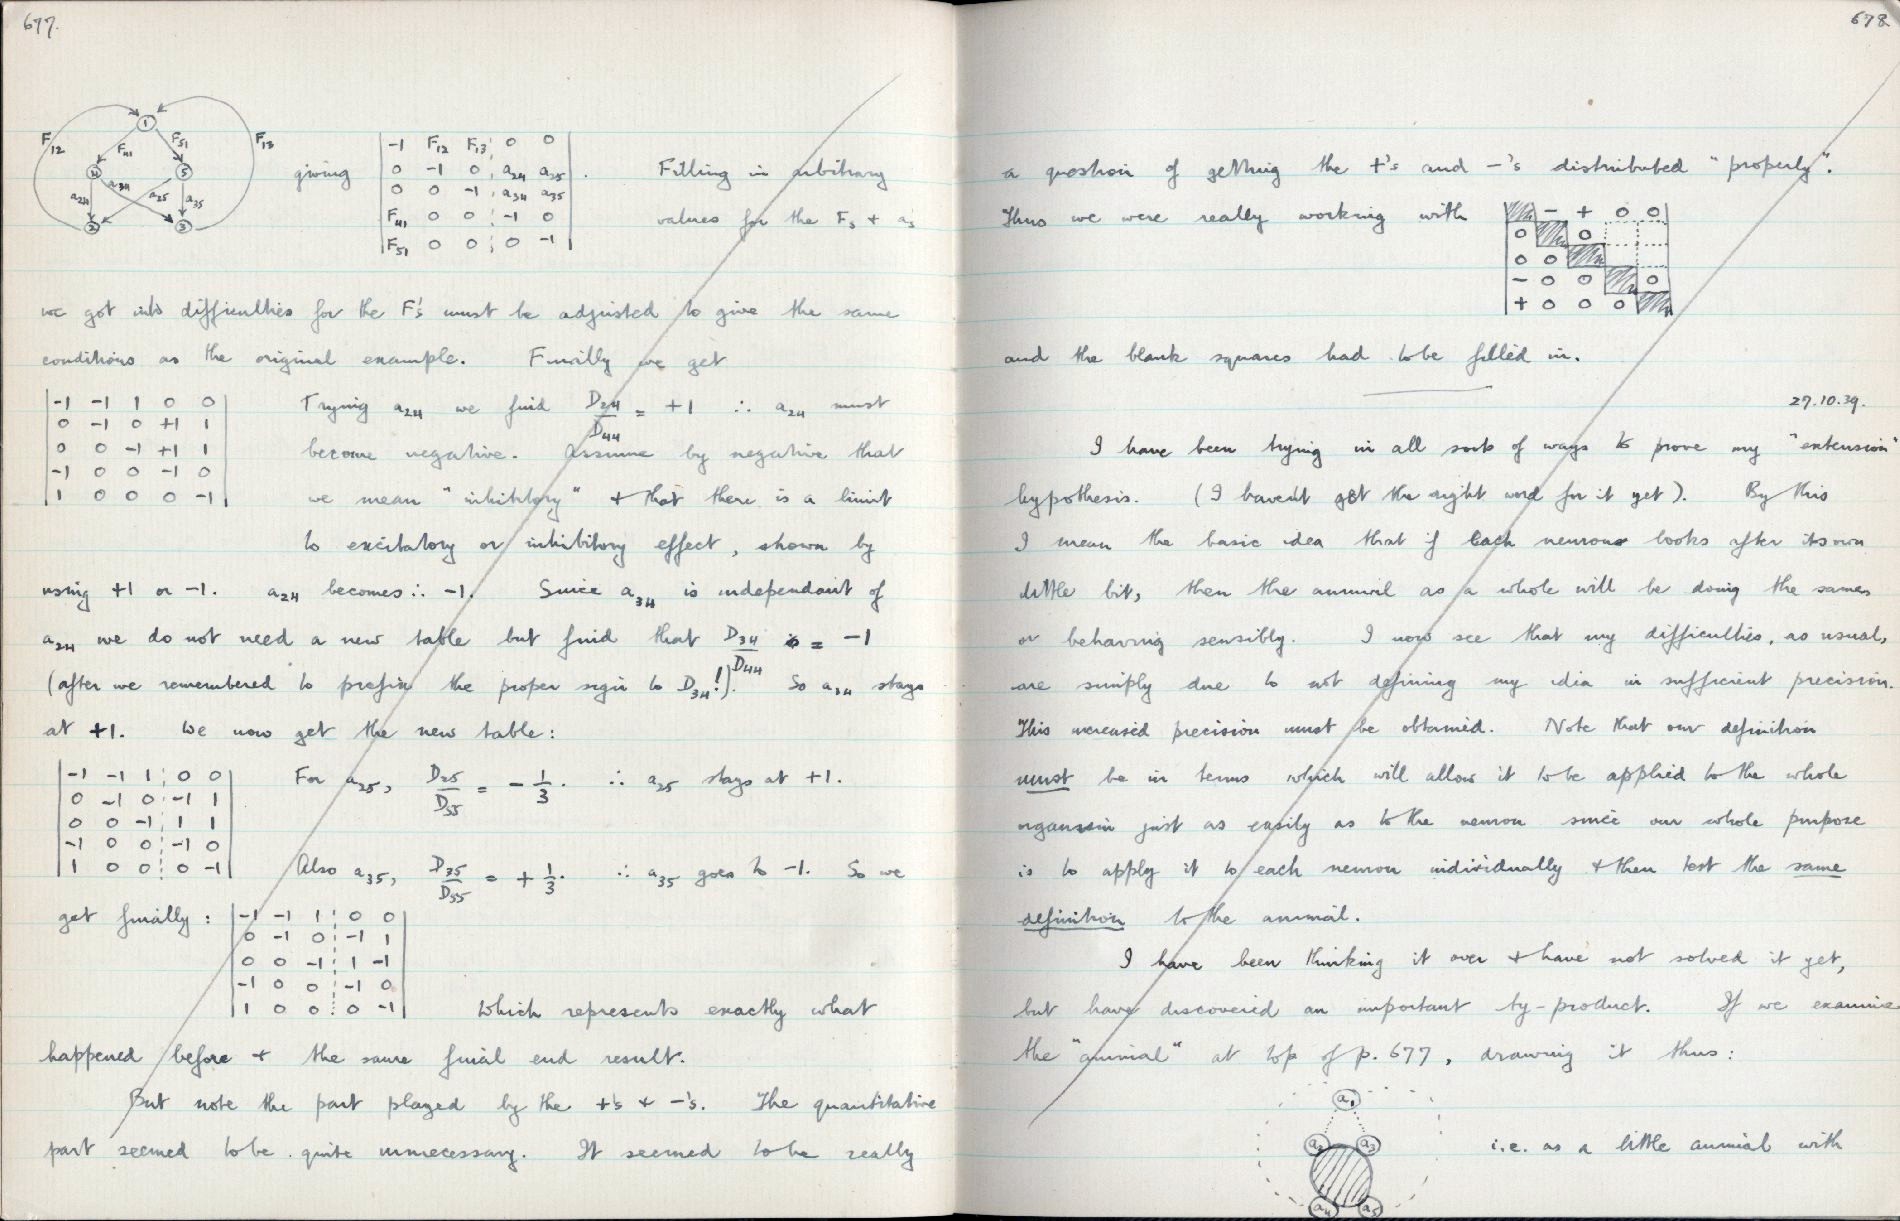 677.
F12 F41 F51 F13
1
4 5
a24 a34 a25 a35
2 3
giving
-1 F12 F13 0 0
0 -1 0 a24 a25
0 0 -1 a34 a35
F41 0 0 -1 0
F51 0 0 0 -1
. Filling in arbitrary
values for the Fs + a's
we got into difficulties for the F's must be adjusted to give the same
conditions as the original example. Finally we get
-1 -1 1 0 0
0 -1 0 +1 1
0 0 -1 +1 1
-1 0 0 -1 0
1 0 0 0 -1
Trying a24 we find D24/D44 = +1 ∴ a24 must
become negative. Assume by negative that
we mean "inhibitory" + that there is a limit
to excitatory or inhibitory effect, shown by
using +1 or -1. a24 becomes ∴ -1. Since a34 is independant of
a24 we do not need a new table but find that D34/D44 = -1
(after we remembered to prefix the proper sign to D34!). So a34 stays
at +1. We now get the new table:
-1 -1 1 0 0
0 -1 0 -1 1
0 0 -1 1 1
-1 0 0 -1 0
1 0 0 0 -1
For a25, D25/D55 = -1/3. ∴ a25 stays at +1.
Also a35, D35/D55 = +1/3. ∴ a35 goes to -1. So we
get finally:
-1 -1 1 0 0
0 -1 0 -1 1
0 0 -1 1 -1
-1 0 0 -1 0
1 0 0 0 -1
Which represents exactly what
happened before + the same final end result.
But note the part played by the +'s + -'s. The quantitative
part seemed to be quite unnecessary. It seemed to be really
678
a question of getting the +'s and -'s distributed "properly".
Thus we were really working with
- + 0 0
0 0
0 0
- 0 0 0
+ 0 0 0
and the blank squares had to be filled in.
27.10.39.
I have been trying in all sorts of ways to prove my "extension"
hypothesis. (I haven't got the right word for it yet). By this
I mean the basic idea that if each neuron looks after its own
little bit, then the animal as a whole will be doing the same,
or behaving sensibly. I now see that my difficulties, as usual,
are simply due to not defining my idea in sufficient precision.
This increased precision must be obtained. Note that our definition
must be in terms which will allow it to be applied to the whole
organism just as easily as to the neuron since our whole purpose
is to apply it to each neuron individually + then test the same
definition to the animal.
I have been thinking it over + have not solved it yet,
but have discovered an important by-product. If we examine
the "animal" at top of p. 677, drawing it thus:
a1
a2 a3
a4 a5
i.e. as a little animal with